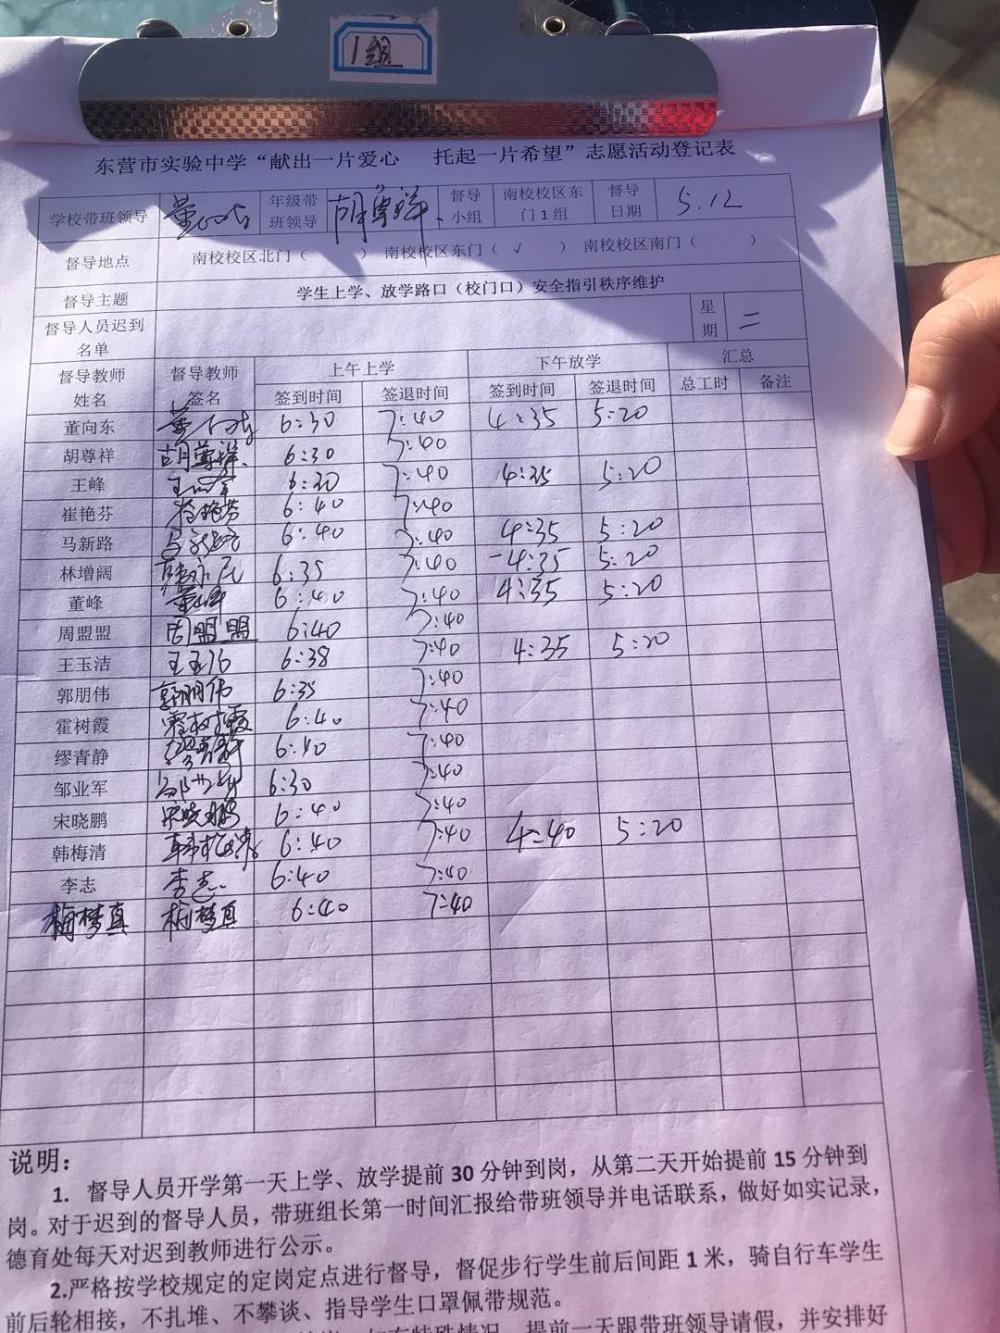 1组
东营市实验中学“献出一片爱心 托起一片希望”志愿活动登记表
学校带班领导 年级带班领导 胡尊祥 督导小组 南校校区东门1组 督导日期 5.12
督导地点 南校校区北门（ ） 南校校区东门（ √ ） 南校校区南门（ ）
督导主题 学生上学、放学路口（校门口）安全指引秩序维护
督导人员迟到名单 星期 二
督导教师姓名 督导教师签名 上午上学 下午放学 汇总
签到时间 签退时间 签到时间 签退时间 总工时 备注
董向东 6:30 7:40 4:35 5:20
胡尊祥 胡尊祥 6:30 7:40
王峰 王峰 6:30 7:40 4:35 5:20
崔艳芬 崔艳芬 6:40 7:40
马新路 马新路 6:40 7:40 4:35 5:20
林增阔 6:35 7:40 4:35 5:20
董峰 董峰 6:40 7:40 4:35 5:20
周盟盟 周盟盟 6:40 7:40
王玉洁 王玉洁 6:38 7:40 4:35 5:20
郭朋伟 郭朋伟 6:35 7:40
霍树霞 霍树霞 6:40 7:40
缪青静 缪青静 6:40 7:40
邹业军 邹业军 6:30 7:40
宋晓鹏 宋晓鹏 6:40 7:40
韩梅清 韩梅清 6:40 7:40 4:40 5:20
李志 李志 6:40 7:40
梅梦真 梅梦真 6:40 7:40
说明：
1. 督导人员开学第一天上学、放学提前 30 分钟到岗，从第二天开始提前 15 分钟到
岗。对于迟到的督导人员，带班组长第一时间汇报给带班领导并电话联系，做好如实记录，
德育处每天对迟到教师进行公示。
2.严格按学校规定的定岗定点进行督导，督促步行学生前后间距 1 米，骑自行车学生
前后轮相接，不扎堆、不攀谈、指导学生口罩佩带规范。
如有特殊情况，提前一天跟带班领导请假，并安排好